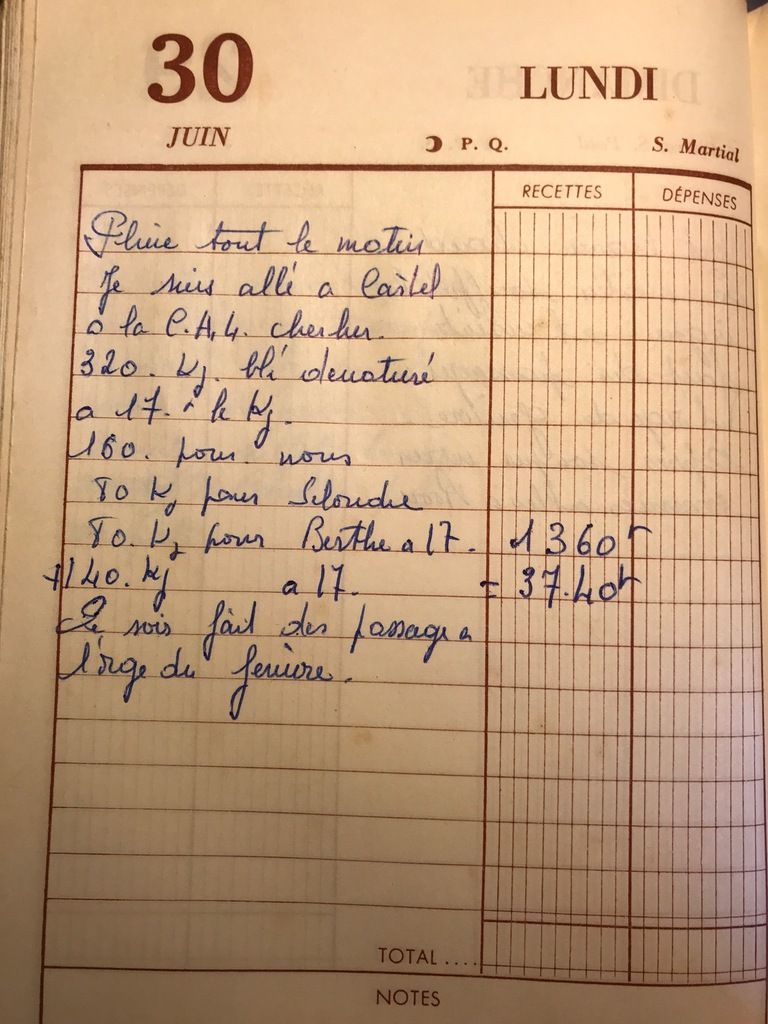 30
LUNDI
JUIN
P. Q.
S. Martial
RECETTES
DÉPENSES
Pluie tout le matin
Je suis allé a Castel
a la C.A.L. chercher.
320. Kg. blé denaturé
a 17. le Kg.
160. pour nous
80 Kg pour
80. Kg pour Berthe a 17. 1360
+140. Kg a 17. = 37.40
Le soir fait des passage a
l'orge du
TOTAL ....
NOTES